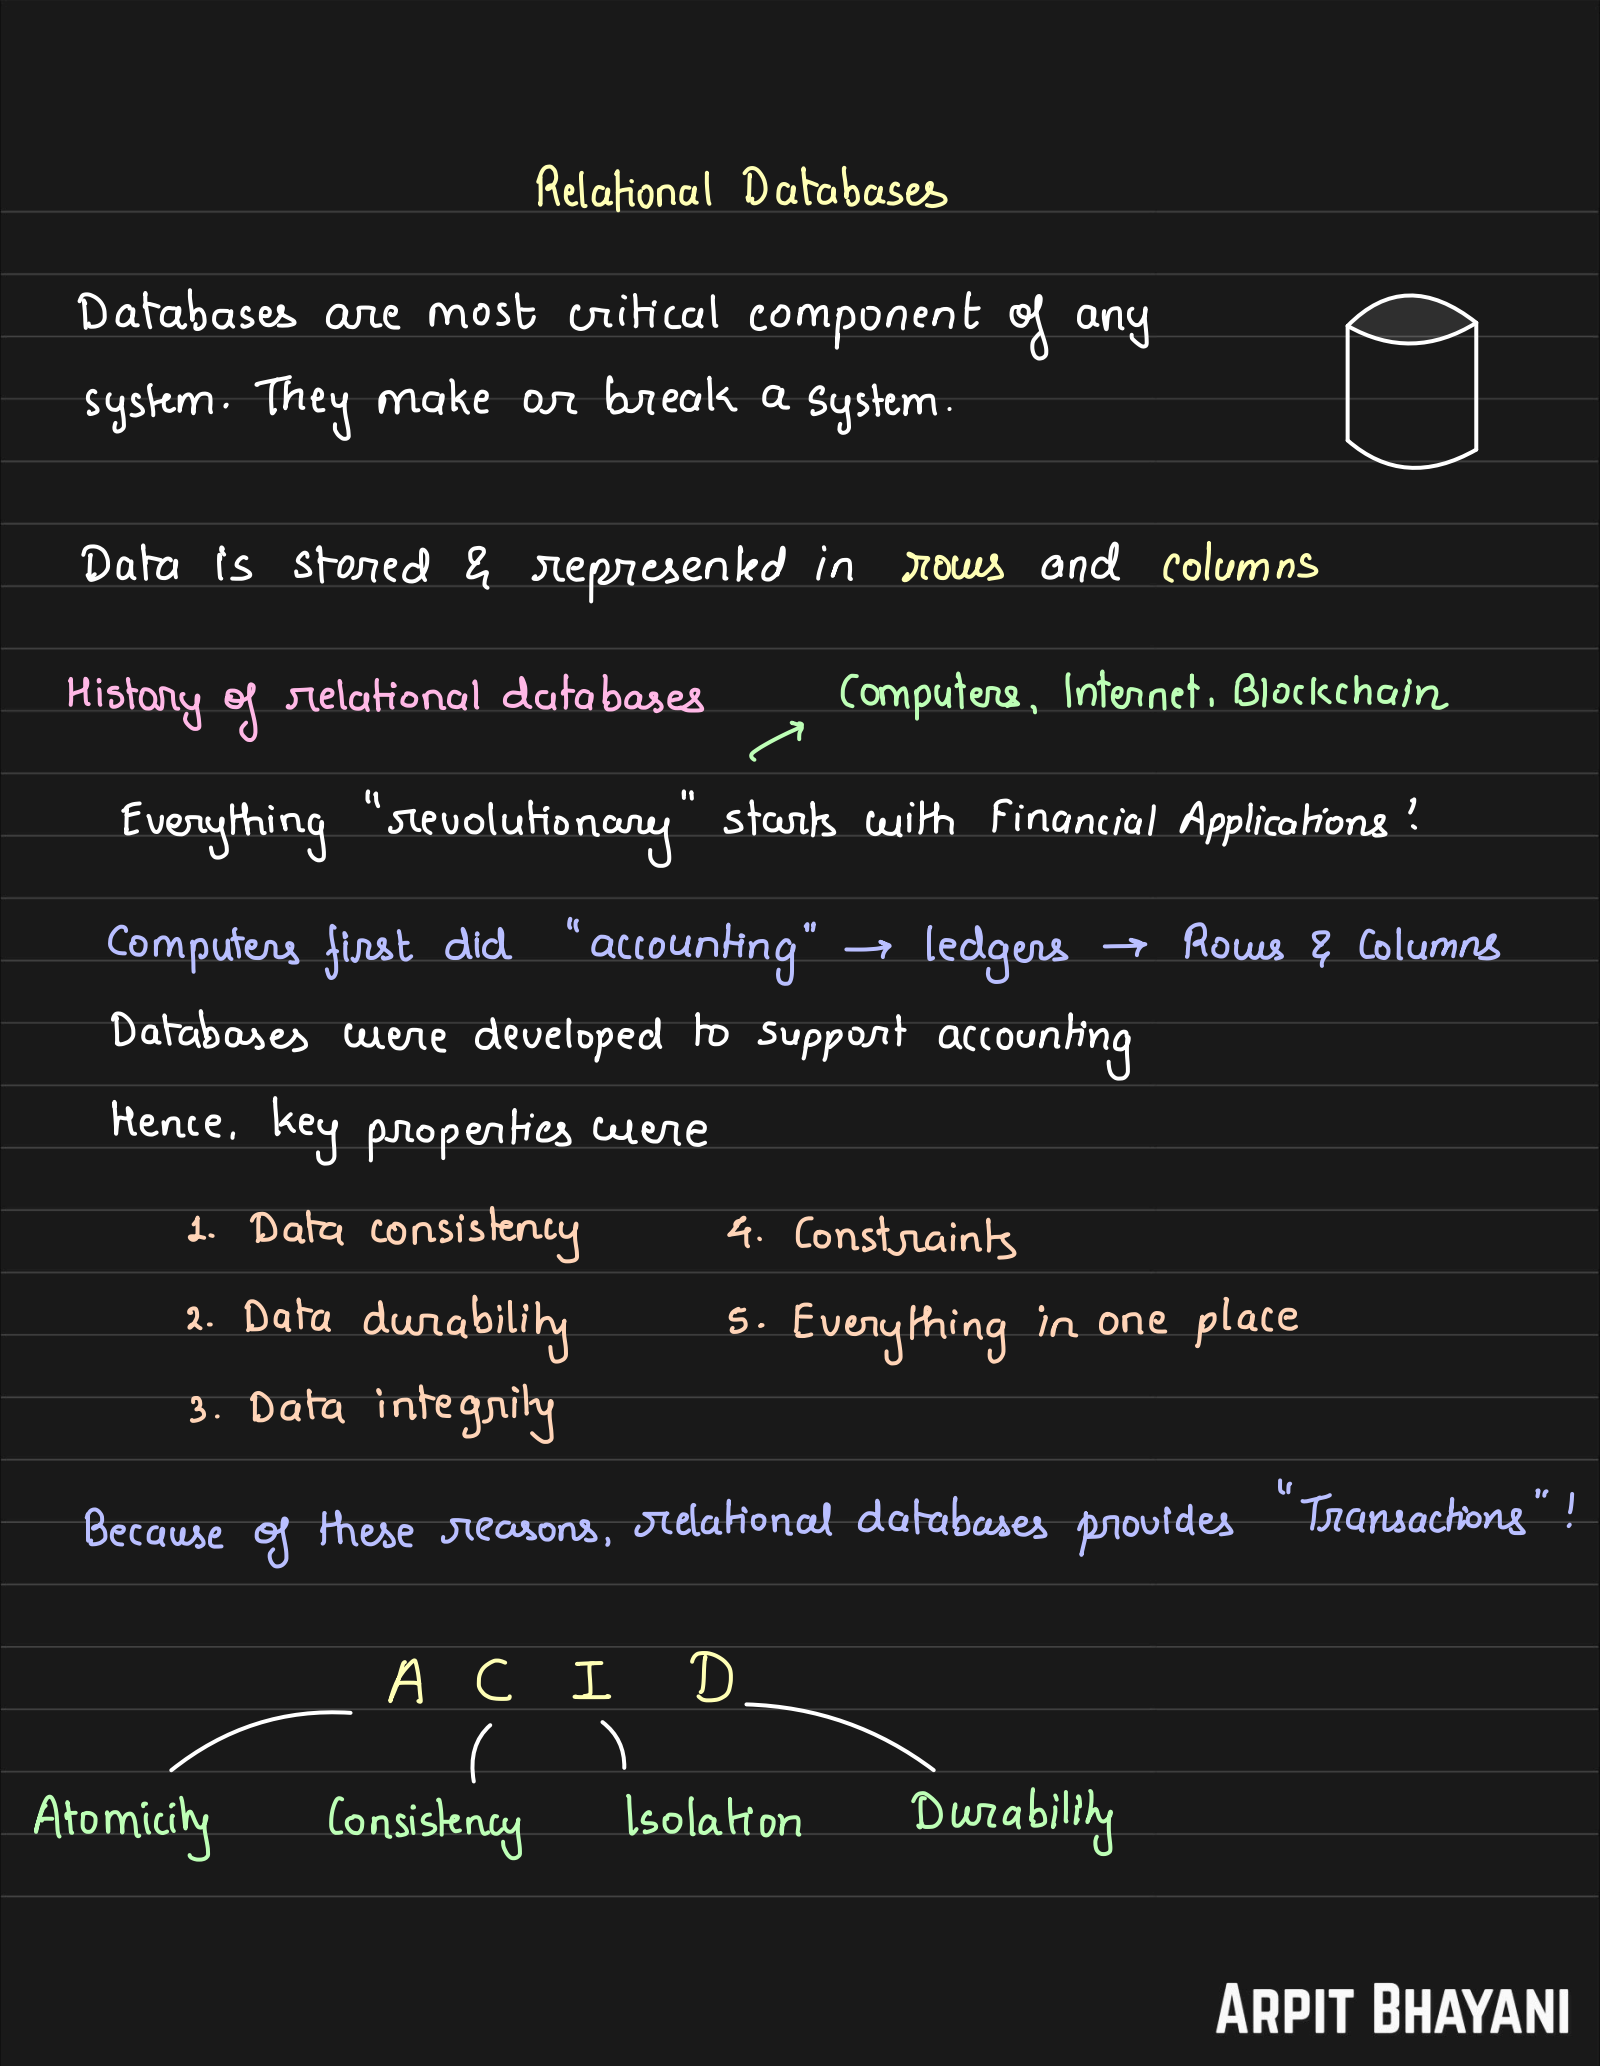 Relational Databases
Databases are most critical component of any
system. They make or break a system.
Data is stored & represented in rows and columns
History of relational databases
Computers, Internet, Blockchain
Everything "revolutionary" starts with Financial Applications!
Computers first did "accounting" → ledgers → Rows & Columns
Databases were developed to support accounting
Hence, key properties were
1. Data consistency 4. Constraints
2. Data durability 5. Everything in one place
3. Data integrity
Because of these reasons, relational databases provides "Transactions"!
A C I D
Atomicity Consistency Isolation Durability
ARPIT BHAYANI